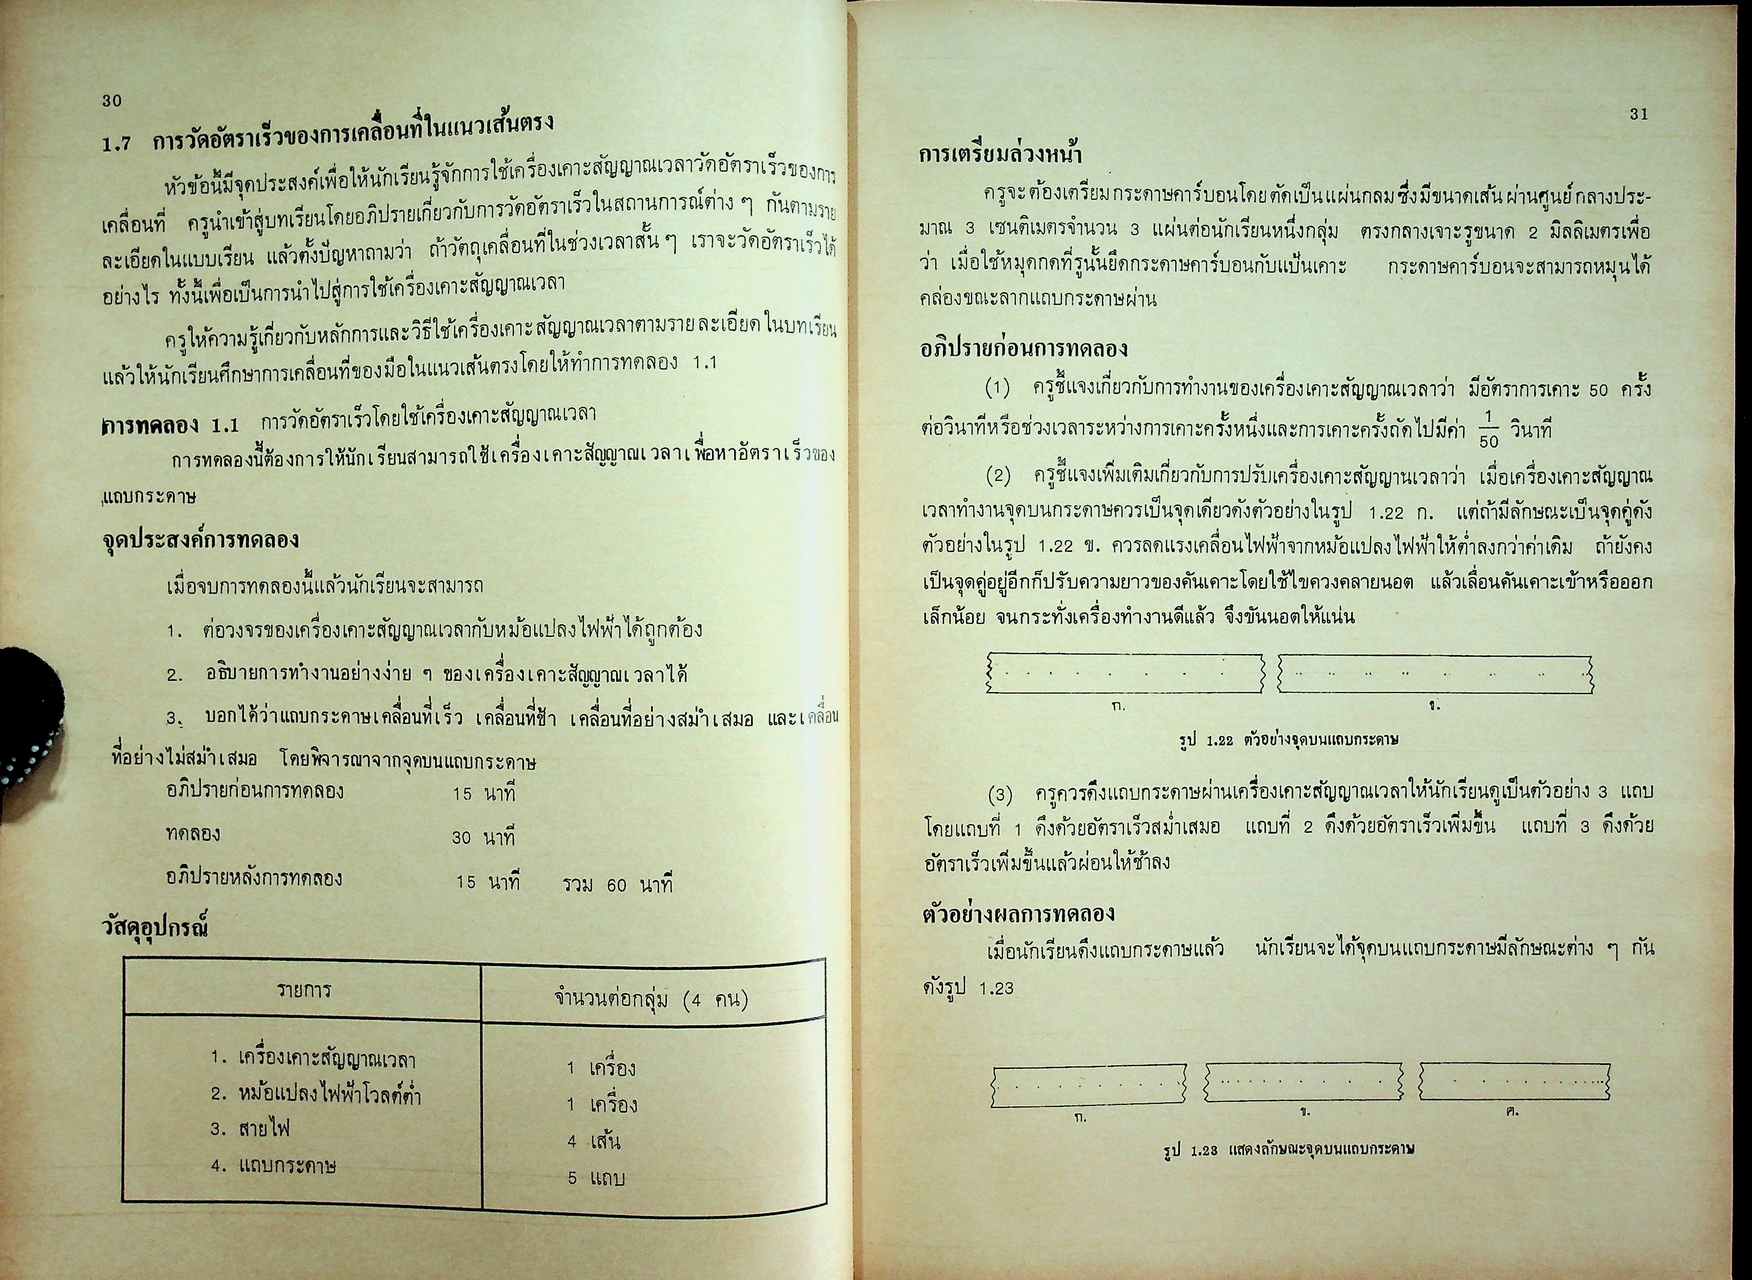 30
1.7 การวัดอัตราเร็วของการเคลื่อนที่ในแนวเส้นตรง
หัวข้อนี้มีจุดประสงค์เพื่อให้นักเรียนรู้จักการใช้เครื่องเคาะสัญญาณเวลาวัดอัตราเร็วของการ
เคลื่อนที่ ครูนำเข้าสู่บทเรียนโดยอภิปรายเกี่ยวกับการวัดอัตราเร็วในสถานการณ์ต่าง ๆ กันตามราย
ละเอียดในแบบเรียน แล้วตั้งปัญหาถามว่า ถ้าวัตถุเคลื่อนที่ในช่วงเวลาสั้น ๆ เราจะวัดอัตราเร็วได้
อย่างไร ทั้งนี้เพื่อเป็นการนำไปสู่การใช้เครื่องเคาะสัญญาณเวลา
ครูให้ความรู้เกี่ยวกับหลักการและวิธีใช้เครื่องเคาะสัญญาณเวลาตามรายละเอียดในบทเรียน
แล้วให้นักเรียนศึกษาการเคลื่อนที่ของมือในแนวเส้นตรงโดยให้ทำการทดลอง 1.1
การทดลอง 1.1 การวัดอัตราเร็วโดยใช้เครื่องเคาะสัญญาณเวลา
การทดลองนี้ต้องการให้นักเรียนสามารถใช้เครื่องเคาะสัญญาณเวลาเพื่อหาอัตราเร็วของ
แถบกระดาษ
จุดประสงค์การทดลอง
เมื่อจบการทดลองนี้แล้วนักเรียนจะสามารถ
1. ต่อวงจรของเครื่องเคาะสัญญาณเวลากับหม้อแปลงไฟฟ้าได้ถูกต้อง
2. อธิบายการทำงานอย่างง่าย ๆ ของเครื่องเคาะสัญญาณเวลาได้
3. บอกได้ว่าแถบกระดาษเคลื่อนที่เร็ว เคลื่อนที่ช้า เคลื่อนที่อย่างสม่ำเสมอ และเคลื่อน
ที่อย่างไม่สม่ำเสมอ โดยพิจารณาจากจุดบนแถบกระดาษ
อภิปรายก่อนการทดลอง 15 นาที
ทดลอง 30 นาที
อภิปรายหลังการทดลอง 15 นาที รวม 60 นาที
วัสดุอุปกรณ์
รายการ จำนวนต่อกลุ่ม (4 คน)
1. เครื่องเคาะสัญญาณเวลา 1 เครื่อง
2. หม้อแปลงไฟฟ้าโวลต์ต่ำ 1 เครื่อง
3. สายไฟ 4 เส้น
4. แถบกระดาษ 5 แถบ
31
การเตรียมล่วงหน้า
ครูจะต้องเตรียมกระดาษคาร์บอนโดยตัดเป็นแผ่นกลมซึ่งมีขนาดเส้นผ่านศูนย์กลางประ-
มาณ 3 เซนติเมตรจำนวน 3 แผ่นต่อนักเรียนหนึ่งกลุ่ม ตรงกลางเจาะรูขนาด 2 มิลลิเมตรเพื่อ
ว่า เมื่อใช้หมุดกดที่รูนั้นยึดกระดาษคาร์บอนกับแป้นเคาะ กระดาษคาร์บอนจะสามารถหมุนได้
คล่องขณะลากแถบกระดาษผ่าน
อภิปรายก่อนการทดลอง
(1) ครูชี้แจงเกี่ยวกับการทำงานของเครื่องเคาะสัญญาณเวลาว่า มีอัตราการเคาะ 50 ครั้ง
ต่อวินาทีหรือช่วงเวลาระหว่างการเคาะครั้งหนึ่งและการเคาะครั้งถัดไปมีค่า 1/50 วินาที
(2) ครูชี้แจงเพิ่มเติมเกี่ยวกับการปรับเครื่องเคาะสัญญาณเวลาว่า เมื่อเครื่องเคาะสัญญาณ
เวลาทำงานจุดบนกระดาษควรเป็นจุดเดียวดังตัวอย่างในรูป 1.22 ก. แต่ถ้ามีลักษณะเป็นจุดคู่ดัง
ตัวอย่างในรูป 1.22 ข. ควรลดแรงเคลื่อนไฟฟ้าจากหม้อแปลงไฟฟ้าให้ต่ำลงกว่าค่าเดิม ถ้ายังคง
เป็นจุดคู่อยู่อีกก็ปรับความยาวของคันเคาะโดยใช้ไขควงคลายนอต แล้วเลื่อนคันเคาะเข้าหรือออก
เล็กน้อย จนกระทั่งเครื่องทำงานดีแล้ว จึงขันนอตให้แน่น
ก. ข.
รูป 1.22 ตัวอย่างจุดบนแถบกระดาษ
(3) ครูควรดึงแถบกระดาษผ่านเครื่องเคาะสัญญาณเวลาให้นักเรียนดูเป็นตัวอย่าง 3 แถบ
โดยแถบที่ 1 ดึงด้วยอัตราเร็วสม่ำเสมอ แถบที่ 2 ดึงด้วยอัตราเร็วเพิ่มขึ้น แถบที่ 3 ดึงด้วย
อัตราเร็วเพิ่มขึ้นแล้วผ่อนให้ช้าลง
ตัวอย่างผลการทดลอง
เมื่อนักเรียนดึงแถบกระดาษแล้ว นักเรียนจะได้จุดบนแถบกระดาษมีลักษณะต่าง ๆ กัน
ดังรูป 1.23
ก. ข. ค.
รูป 1.23 แสดงลักษณะจุดบนแถบกระดาษ